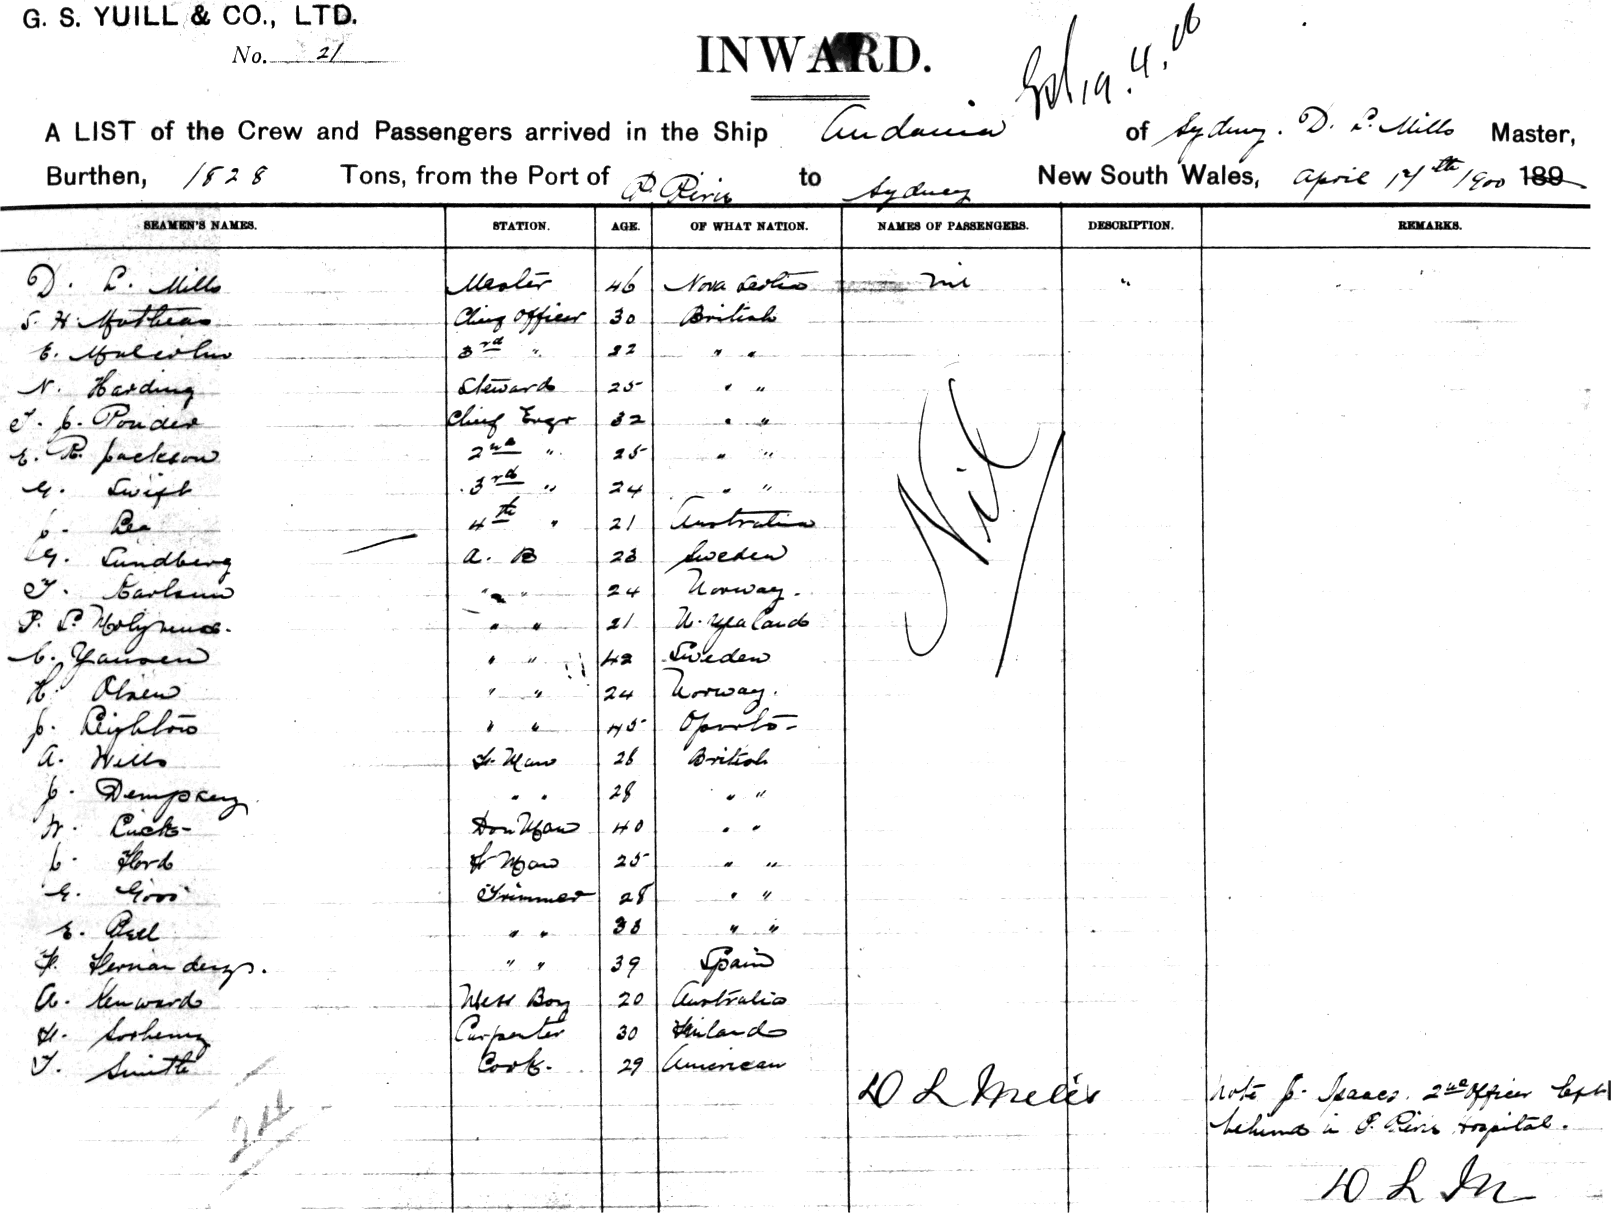 G. S. YUILL & CO., LTD.
No. 21
INWARD.
19.4.00
A LIST of the Crew and Passengers arrived in the Ship Andania of Sydney. D. L. Mills Master,
Burthen, 1828 Tons, from the Port of P. Pirie to Sydney New South Wales, April 17th 1900 189
SEAMEN'S NAMES. STATION. AGE. OF WHAT NATION. NAMES OF PASSENGERS. DESCRIPTION. REMARKS.
D. L. Mills Master 46 Nova Scotia nil "
S. H. Mathias Chief Officer 30 British
E. Malcolm 3rd " 22 " "
N. Harding Steward 25 " "
T. J. Ponder Chief Engr 32 " "
E. R. Jackson 2nd " 25 " "
G. Swift 3rd " 24 " "
J. Lea 4th " 21 Australia
G. Lundberg A. B 23 Sweden
T. Karlsun " " 24 Norway.
P. L. " " 21 N. Zealand
C. Yansen " " 42 Sweden
H. Olsen " " 24 Norway.
J. Leighton " " 45 Oporto
A. Wills F. Man 28 British
J. Dempsey. " " 28 " "
W. Luck Don Man 40 " "
C. Ford F Man 25 " "
G. Trimmer 28 " "
E. Bell " " 33 " "
F. Hernandezs. " " 39 Spain
A. Kenward Mess Boy 20 Australia
H. Carpenter 30 Finland
T. Smith Cook. 29 American
Nil
D L Mills
Note J. Isaacs. 2nd Officer left
behind in P. Pirie Hospital.
D L M